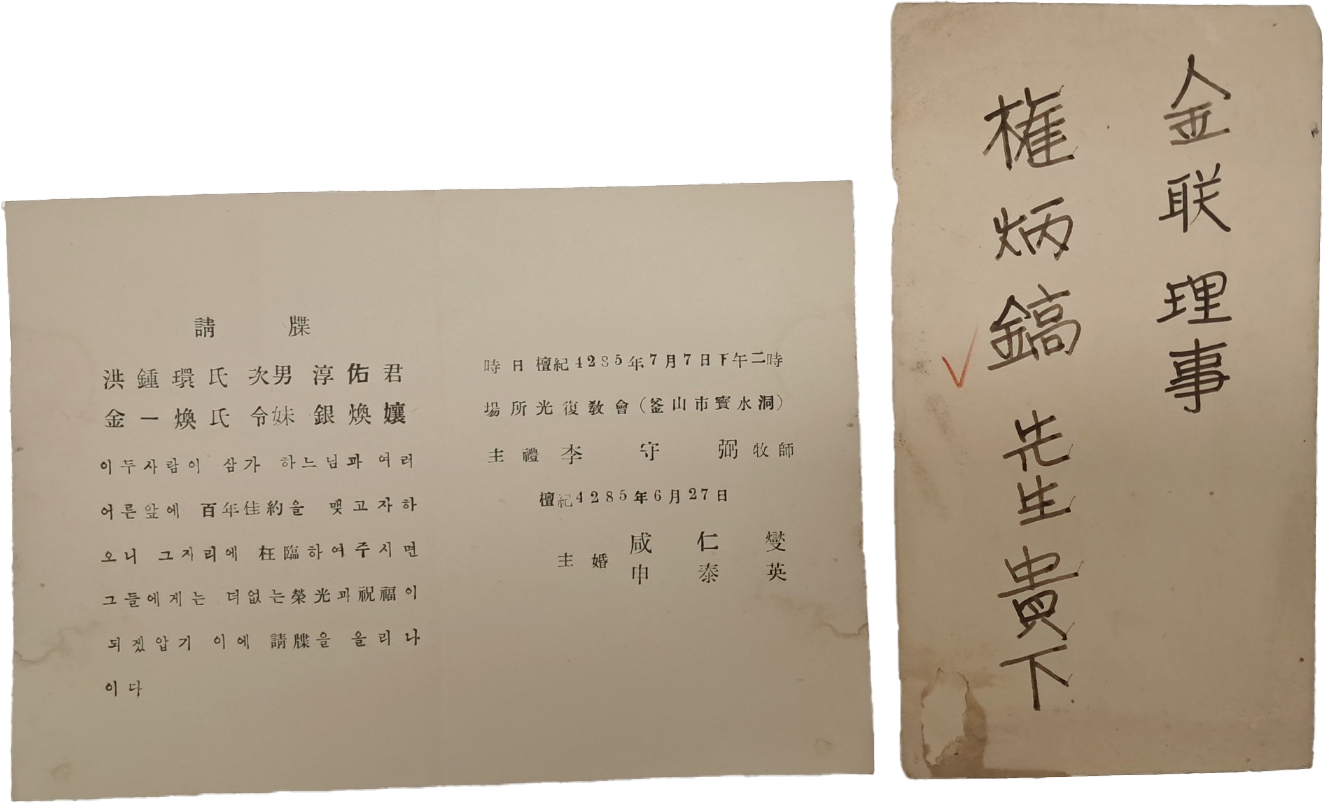 請牒
洪鍾環氏 次男 淳佑君
金一煥氏 令妹 銀煥孃
이두사람이 삼가 하느님과 여러
어른앞에 百年佳約을 맺고자하
오니 그자리에 枉臨하여주시면
그들에게는 더없는榮光과祝福이
되겠압기 이에 請牒을 올리나
이다
時日 檀紀4285年7月7日下午二時
場所光復敎會(釜山市寶水洞)
主禮 李守弼 牧師
檀紀4285年6月27日
主婚 咸仁燮
申泰英
金联理事
権炳鎬 先生貴下